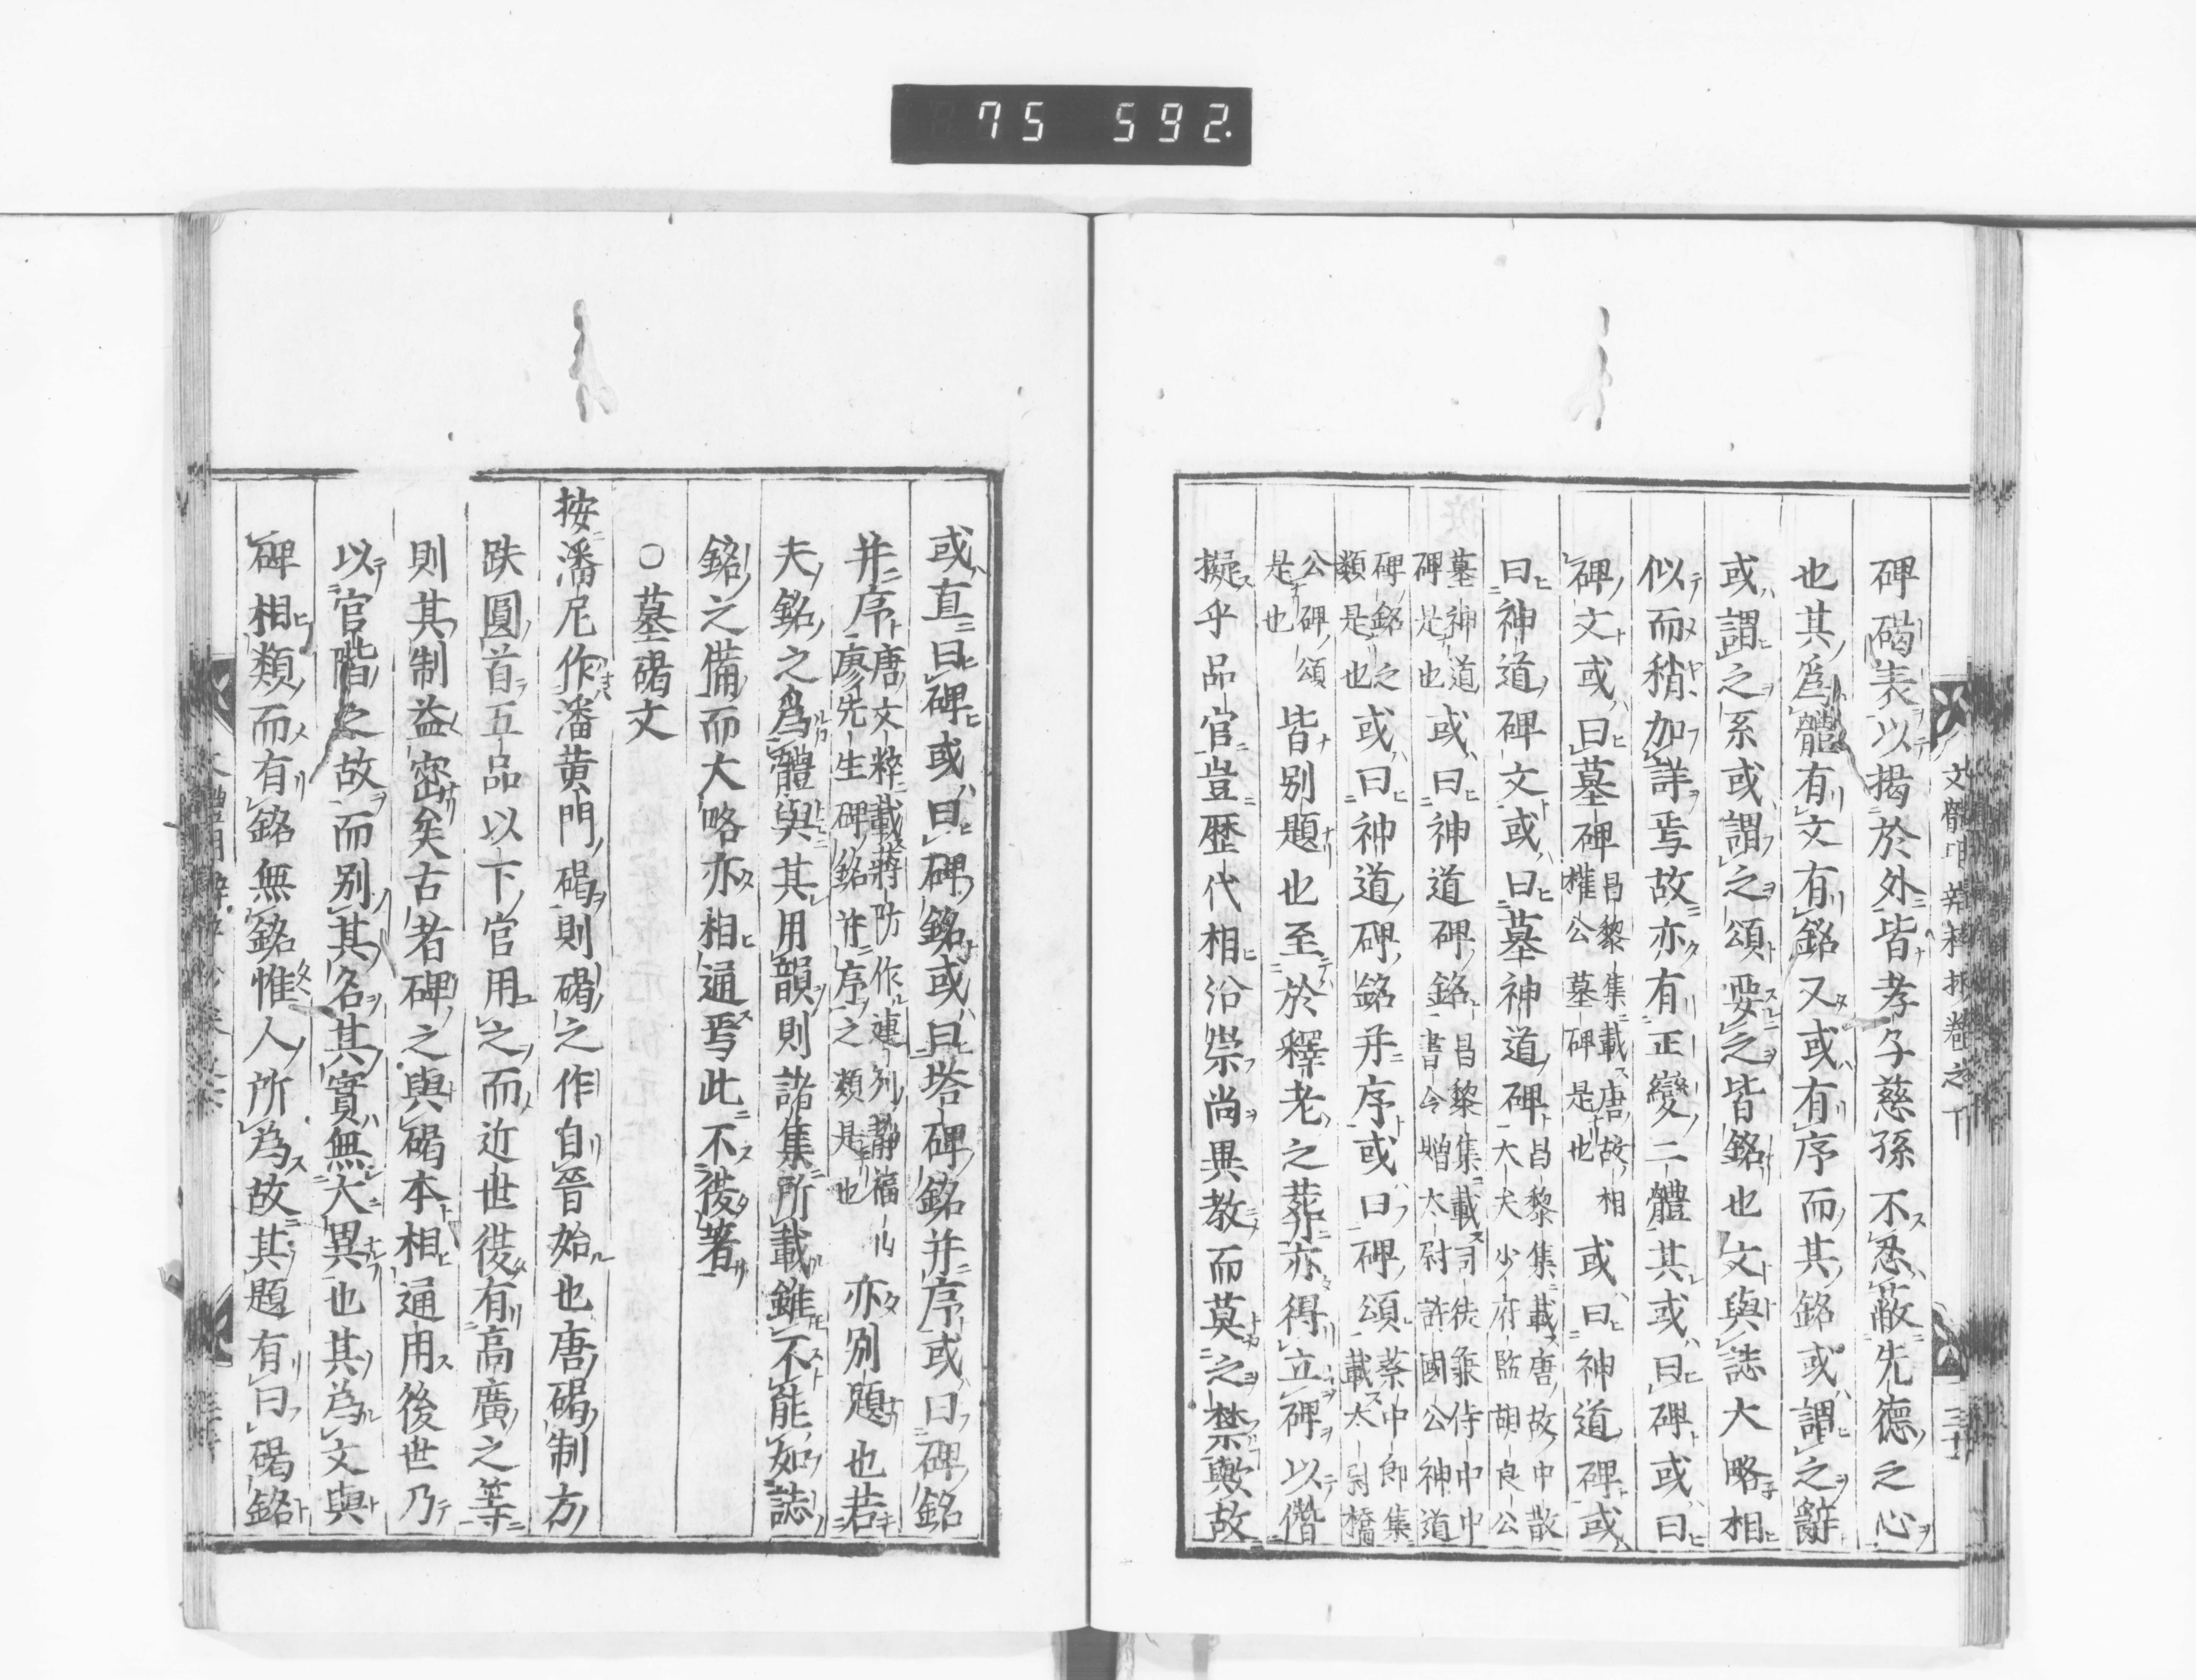 75 592.
碑碣表以揭於外皆孝子慈孫不忍蔽先德之心
也其爲體有文有銘又或有序而其銘或謂之辭
或謂之系或謂之頌要之皆銘也文與誌大略相
似而稍加詳焉故亦有正變二體其或曰碑或曰
碑文或曰墓碑昌黎集載唐故相權公墓碑是也或曰神道碑或
曰神道碑文或曰墓神道碑昌黎集載唐故中散大夫少府監胡良公
墓神道碑是也或曰神道碑銘昌黎集載司徒兼侍中中書令贈太尉許國公神道
碑銘之類是也或曰神道碑銘并序或曰碑頌蔡中郎集載太尉橋
公碑頌是也皆別題也至於釋老之葬亦得立碑以僭
擬乎品官豈歷代相沿崇尚異教而莫之禁歟故
或直曰碑或曰碑銘或曰塔碑銘并序或曰碑銘
并序唐文粹載蔣防作連列靜福山廖先生碑銘并序之類是也亦別題也若
夫銘之爲體與其用韻則諸集所載雖不能如誌
銘之備而大略亦相通焉此不復著
○墓碣文
按潘尼作潘黃門碣則碣之作自晉始也唐碣制方
趺圓首五品以下官用之而近世復有高廣之等
則其制益密矣古者碑之與碣本相通用後世乃
以官階之故而別其名其實無大異也其為文與
碑相類而有銘無銘惟人所為故其題有曰碣銘